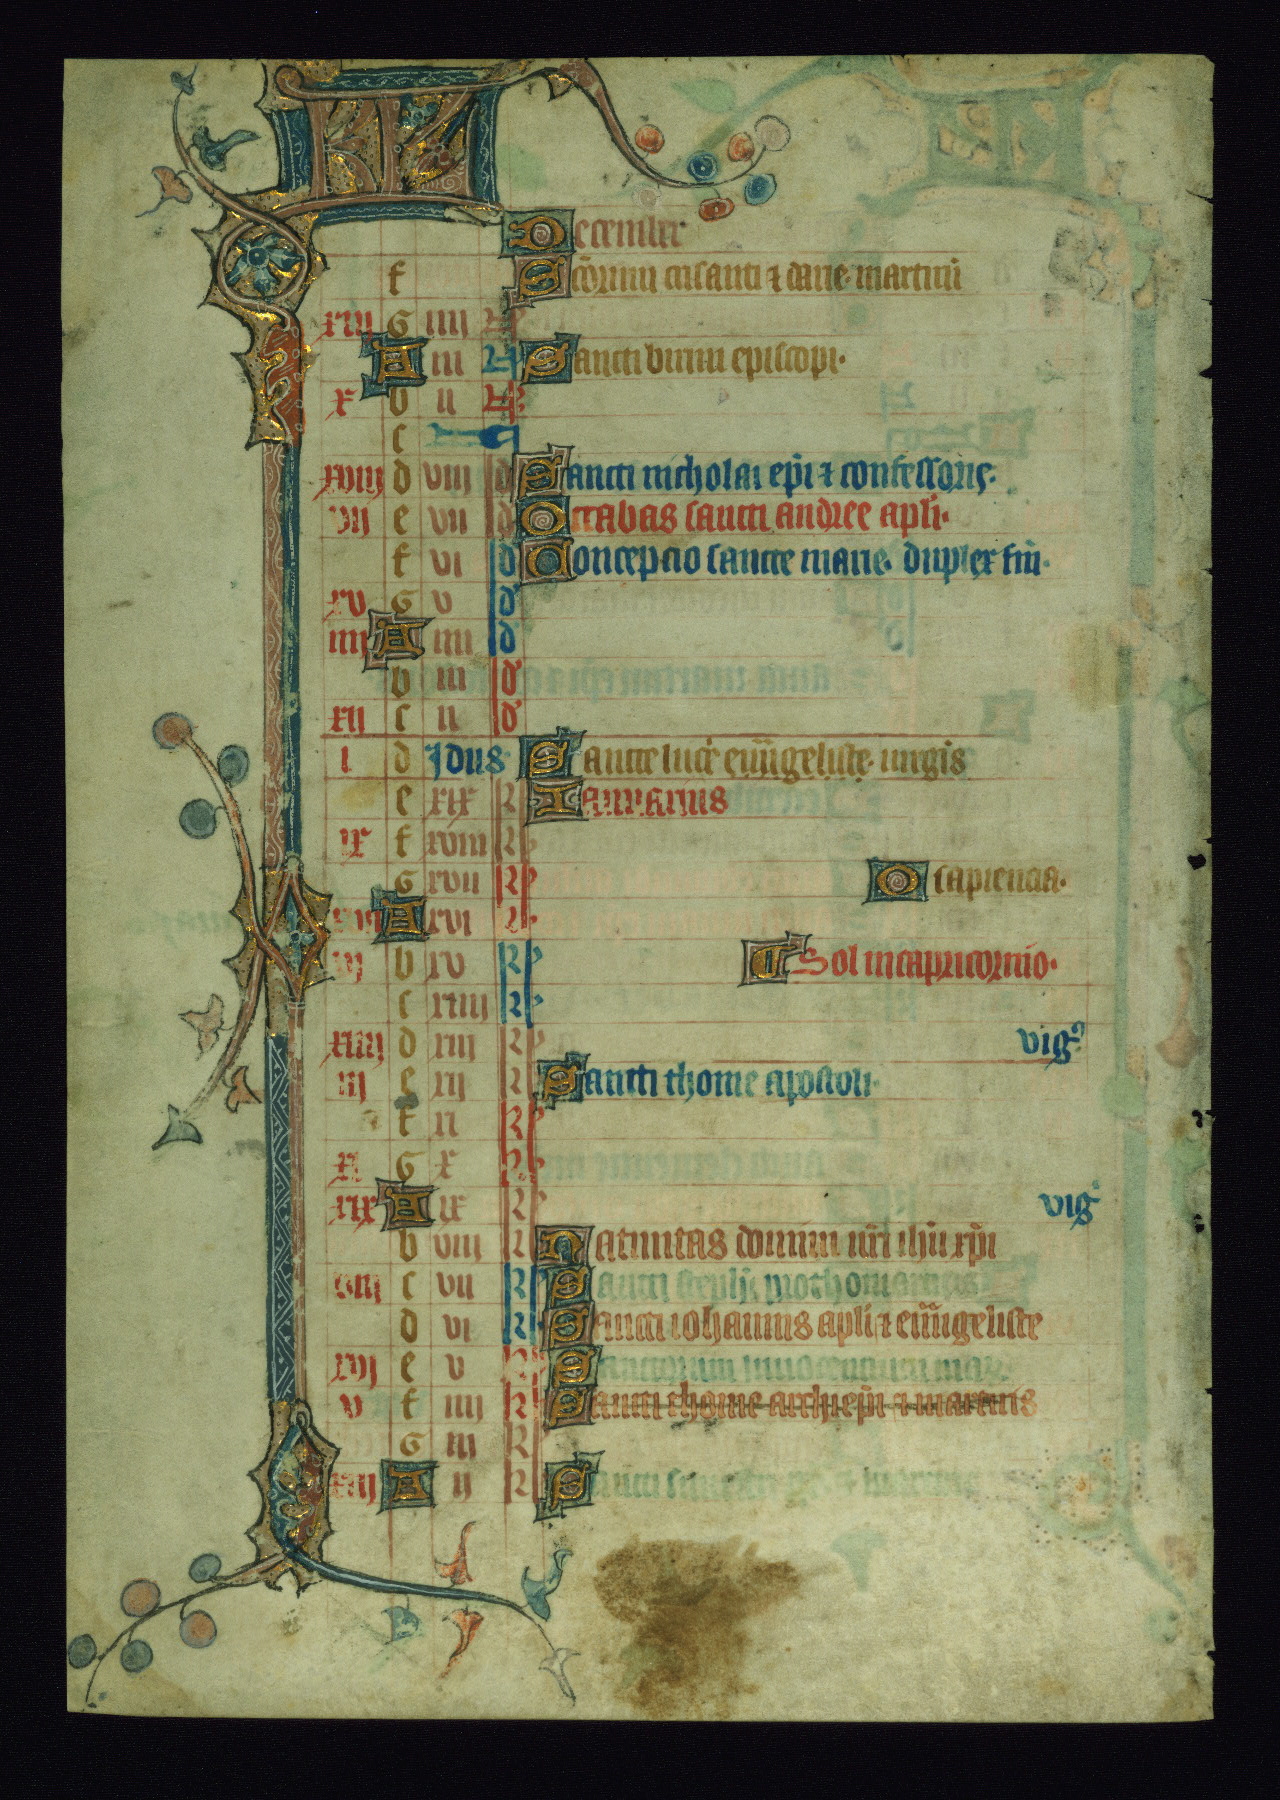 KL
December
f Scõrum crisanti ⁊ darie martirũ
xiii G iiii N
A iii N Sancti birini episcopi·
x b ii N
c
xviii d viii id Sancti nicholai epĩ ⁊ confessoris·
vii e vii id Octabas sancti andree apli·
f vi id Concepcio sancte marie· duplex fm̃·
xv G v id
iiii A iiii id
b iii id
xii c ii id
i d Idus Sancte lucie euñgeliste· uirgis
e xix kl Ianuarius
ix f xviii kl
G xvii kl O sapiencia·
A xvi kl
vi b xv kl Sol in capricornio·
c xiiii kl
xiiii d xiii kl vig
iii e xii kl Sancti thome apostoli·
f xi kl
xi G x kl
xix A ix kl vig
b viii kl Natiuitas domini nr̃i ihũ xp̃i
viii c vii kl Sancti steph̃i prothomartiris
d vi kl Sancti iohannis apli ⁊ euñgeliste
xvi e v kl Sanctorum innocencium mar
v f iiii kl Sancti thome archiepĩ ⁊ martiris
G iii kl
xiii A ii kl Sancti siluestri